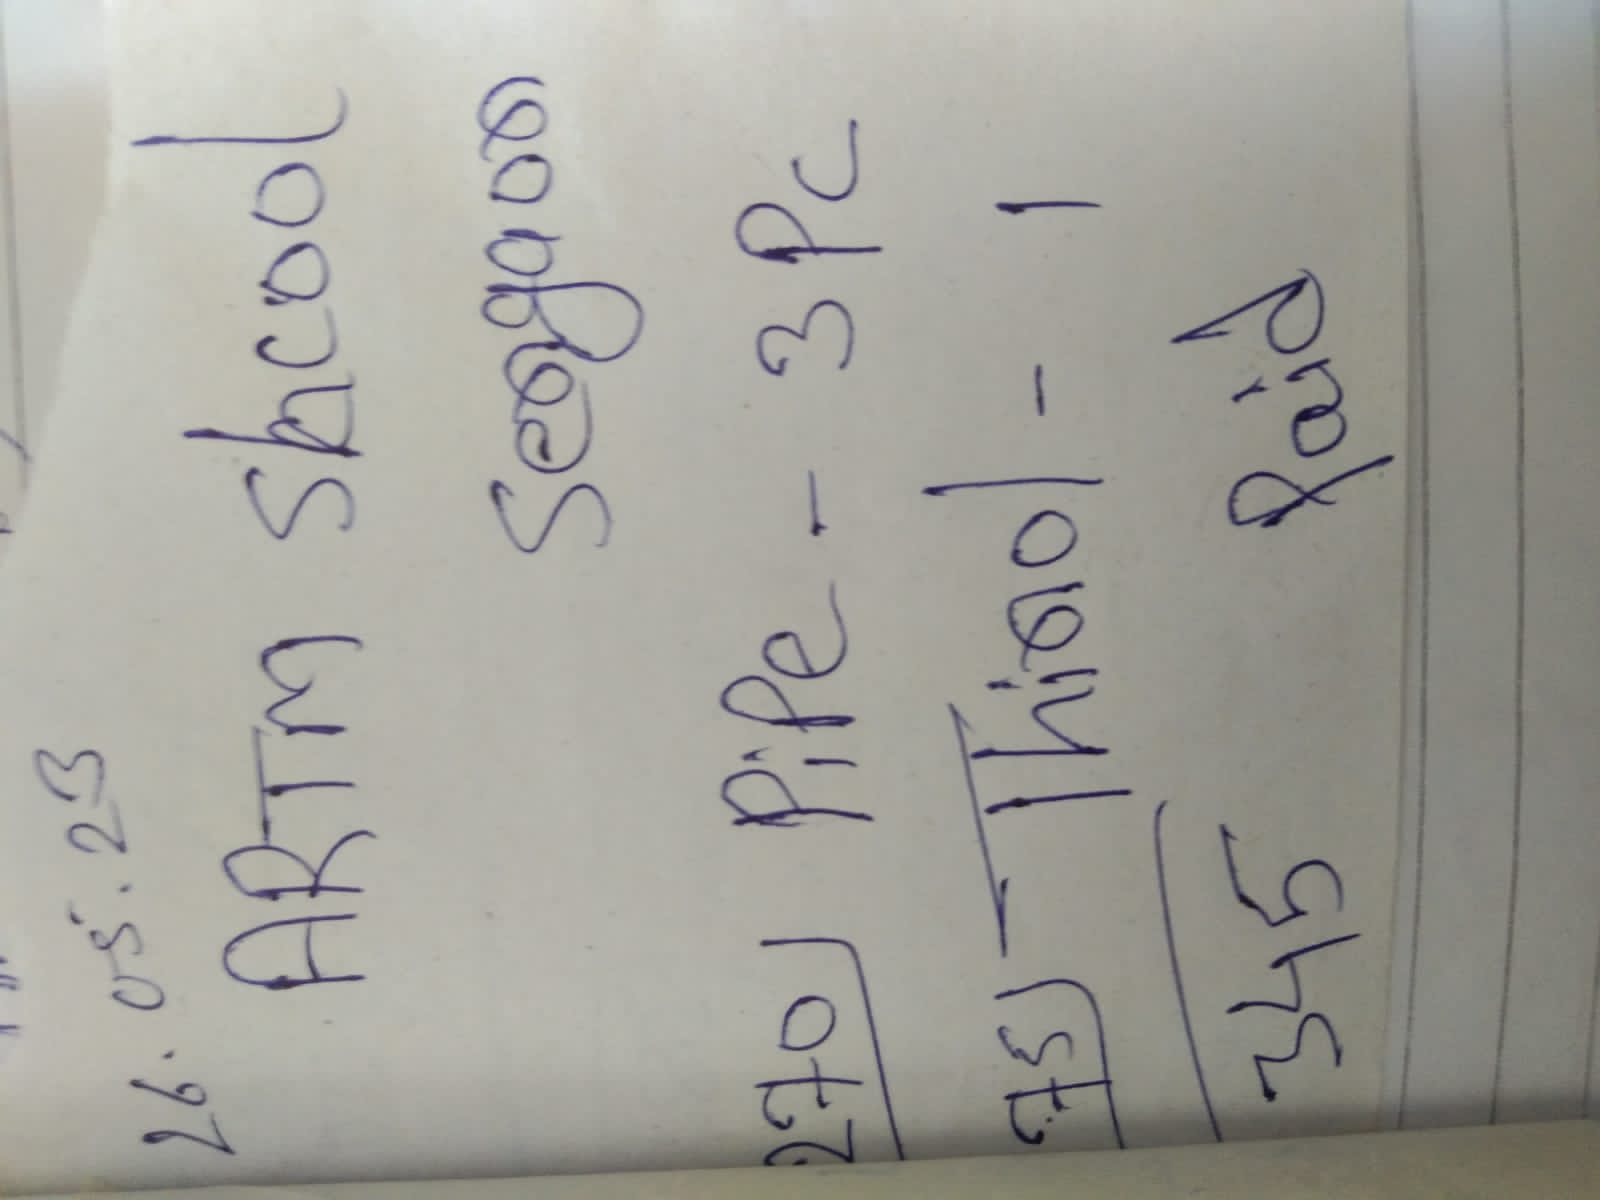 26.05.23
ARTM Shcool
Seogaon
270 Pipe - 3 Pc
75 - Thinol - 1
345 Paid